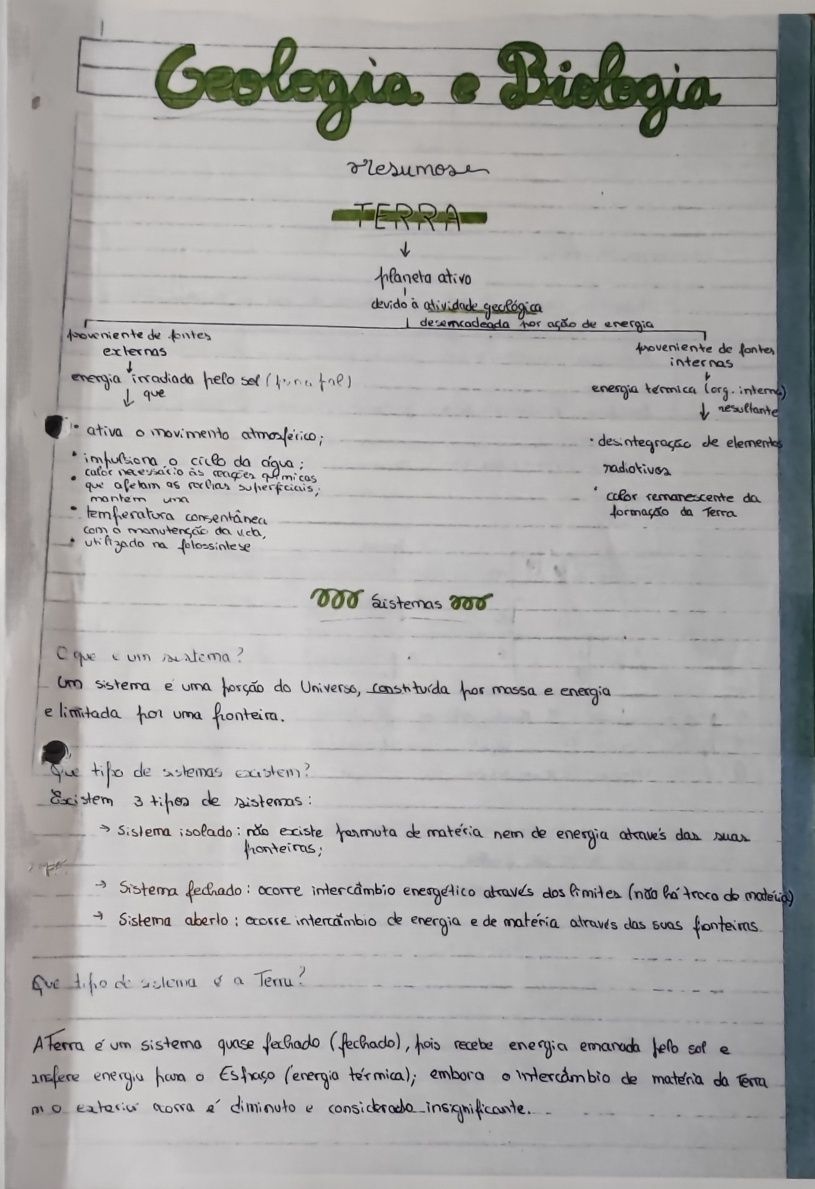 Geologia e Biologia
resumos
TERRA
planeta ativo
devido à atividade geológica
desencadeada por ação de energia
proveniente de fontes
externas
energia irradiada pelo sol
que
• ativa o movimento atmosférico;
• impulsiona o ciclo da água;
• calor necessário às reações químicas
que afetam as rochas superficiais;
mantem uma
• temperatura consentânea
com a manutenção da vida,
• utilizada na fotossintese
proveniente de fontes
internas
energia térmica (org. interna)
resultante
• desintegração de elementos
radiotivos
• calor remanescente da
formação da Terra
Sistemas
O que é um sistema?
Um sistema é uma porção do Universo, constituída por massa e energia
e limitada por uma fronteira.
Que tipo de sistemas existem?
Existem 3 tipos de sistemas:
→ Sistema isolado: não existe permuta de matéria nem de energia através das suas
fronteiras;
→ Sistema fechado: ocorre intercâmbio energético através dos limites (não há troca de matéria)
→ Sistema aberto: ocorre intercâmbio de energia e de matéria através das suas fronteiras.
Que tipo de sistema é a Terra?
A Terra é um sistema quase fechado (fechado), pois recebe energia emanada pelo sol e
energia para o Espaço (energia térmica); embora o intercâmbio de matéria da Terra
o exterior ocorra é diminuto e considerado insignificante.